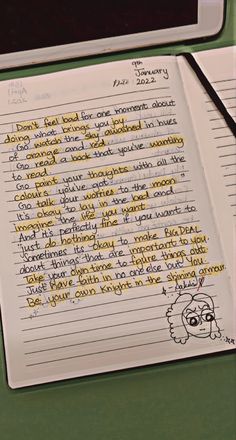 9th
January
2022
Don't feel bad for one moment about
doing what brings you joy.
Go watch the sky awashed in hues
of orange and red.
Go read a book that you've wanting
to read.
Go paint your thoughts with all the
colours you've got.
Go talk your worries to the moon.
It's okay to lay in the bed and
imagine the life you want.
And it's perfectly fine if you want to
"just do nothing."
Sometimes its okay to make BIG DEAL
about things that are important to you.
Take your own time to figure things out.
Just Have faith in no one else but You.
Be your own Knight in the shining armour.